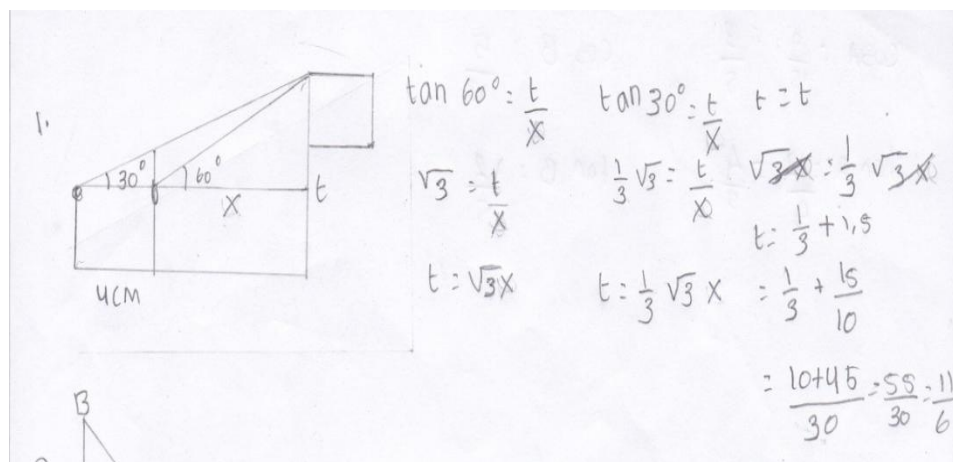 1.
30° 60°
x t
4CM
tan 60° = t/x
√3 = t/x
t = √3x
tan 30° = t/x
1/3 √3 = t/x
t = 1/3 √3 x
t = t
√3x = 1/3 √3x
t = 1/3 + 1,5
= 1/3 + 15/10
= 10+45/30 = 55/30 = 11/6
B